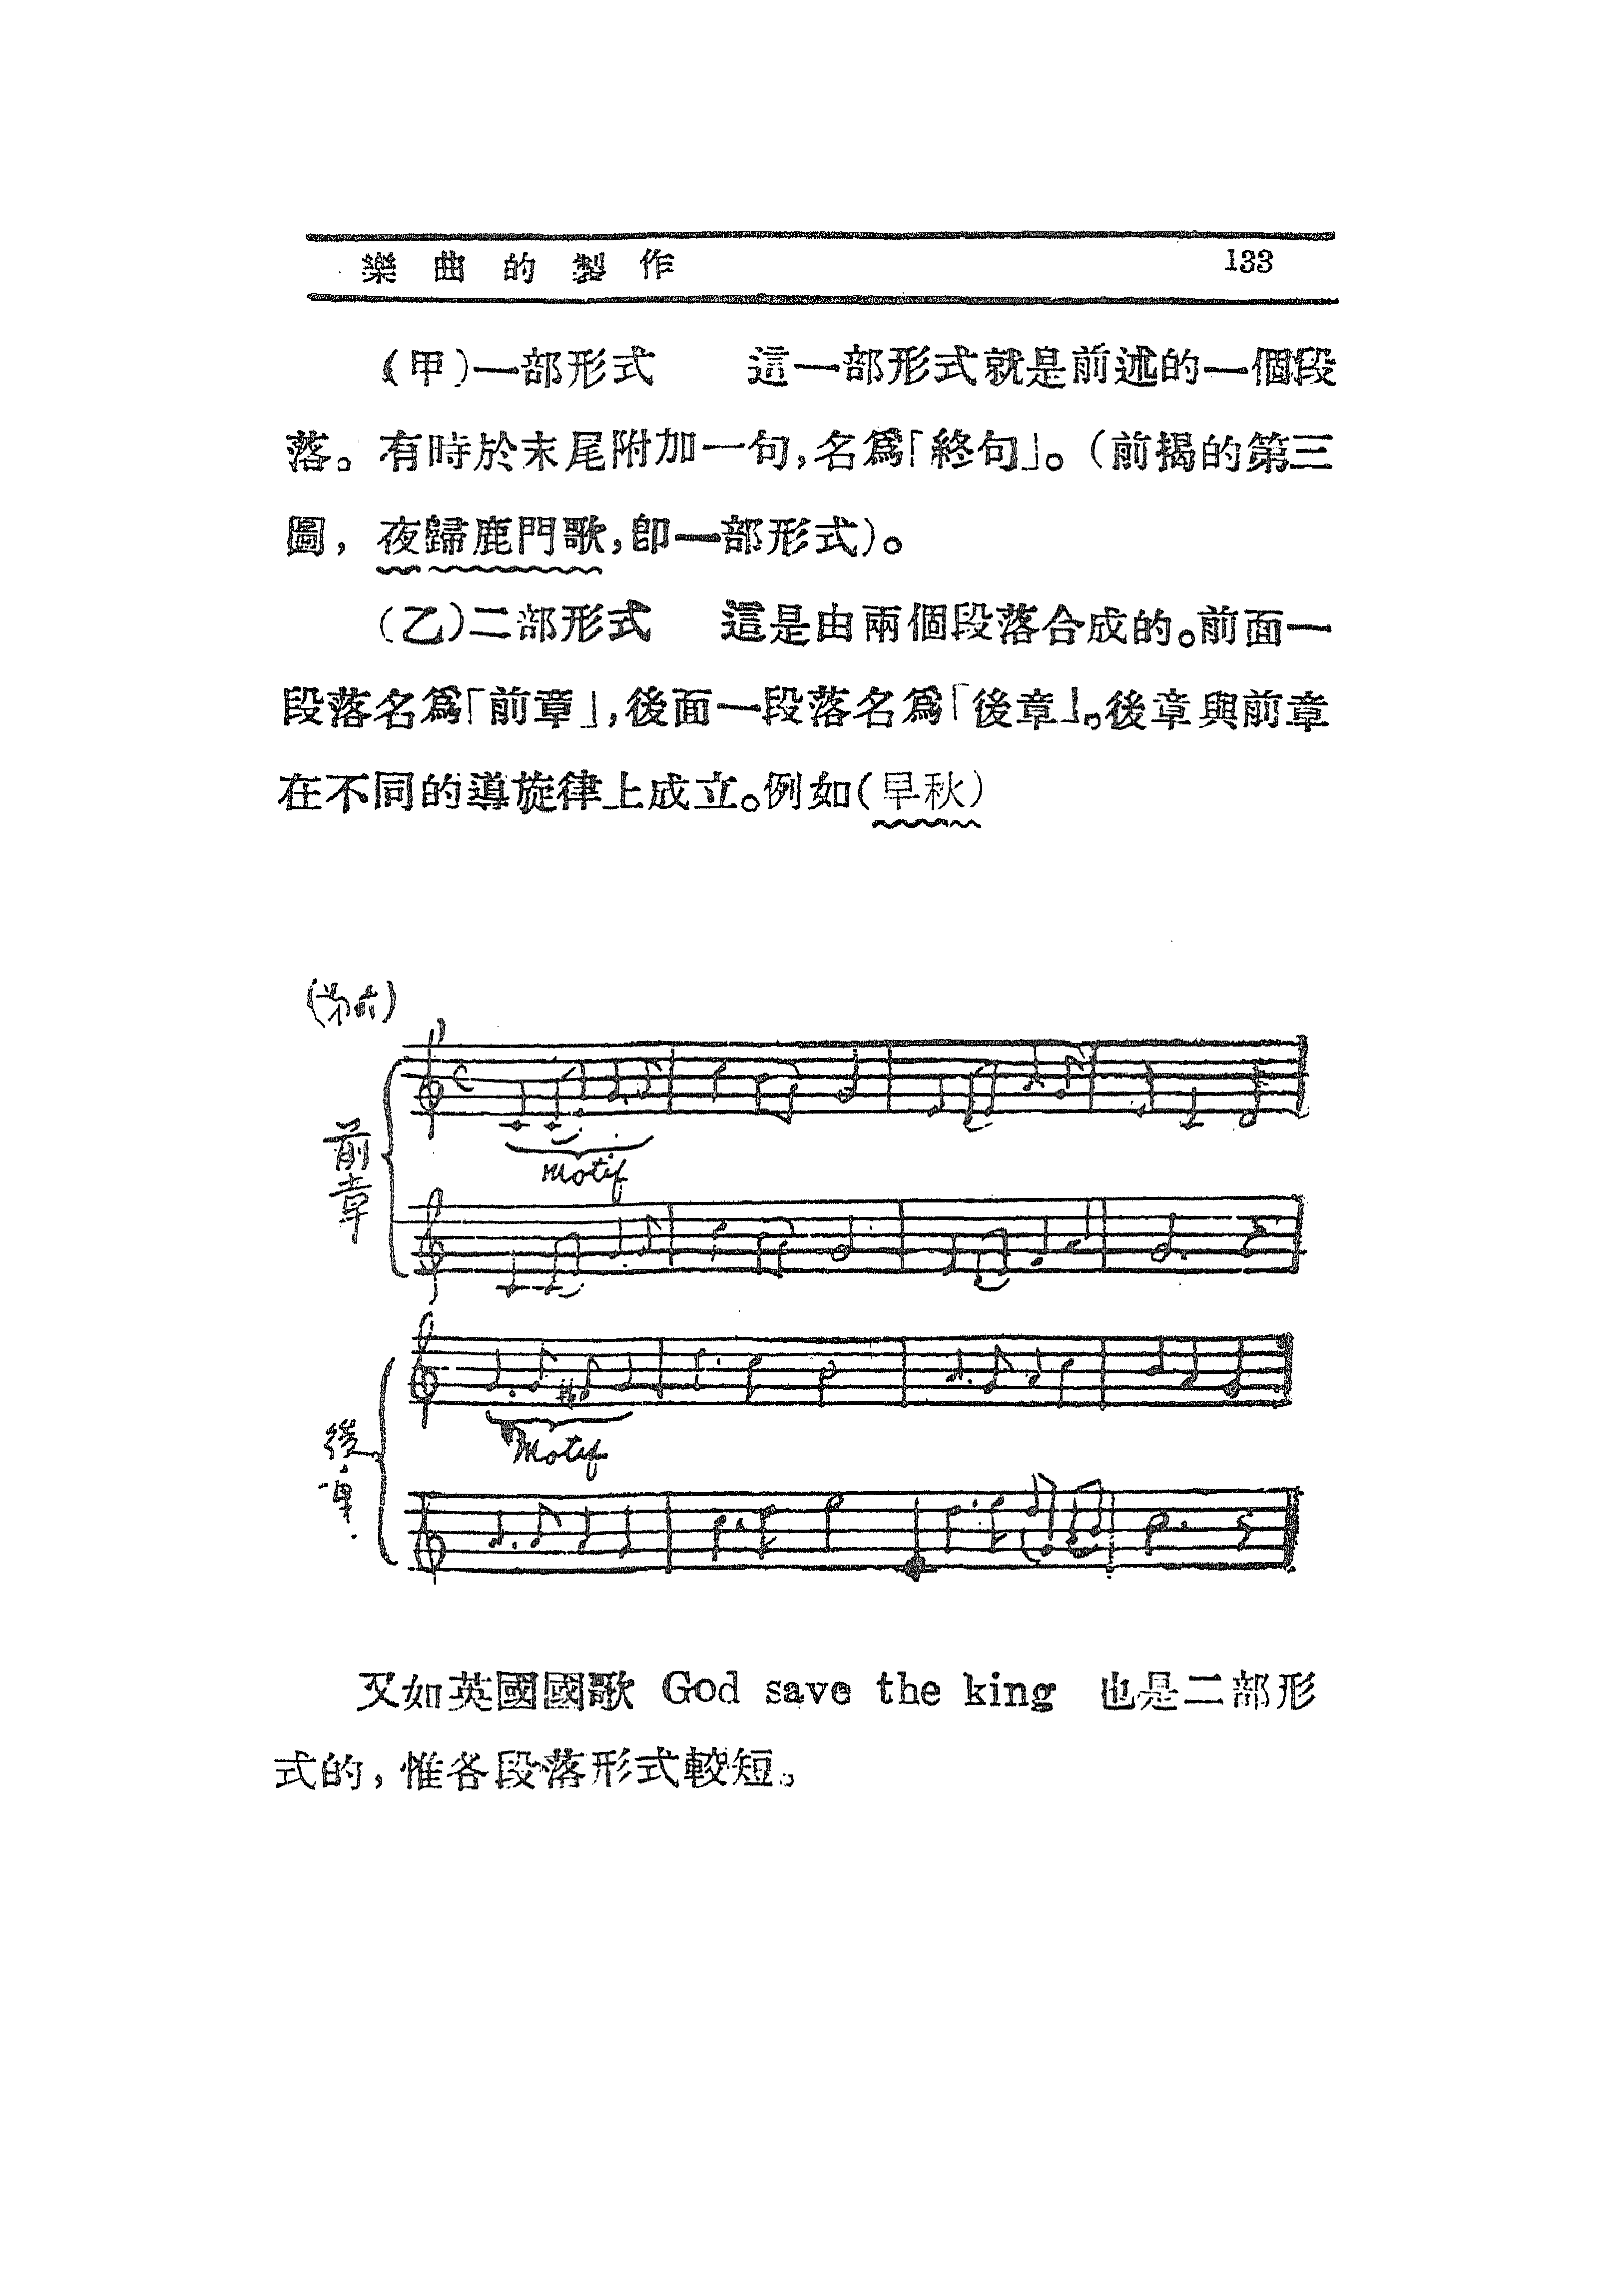 樂曲的製作 133
(甲)一部形式 這一部形式就是前述的一個段
落。有時於末尾附加一句,名爲「終句」。(前揭的第三
圖,夜歸鹿門歌,卽一部形式)。
(乙)二部形式 這是由兩個段落合成的。前面一
段落名爲「前章」,後面一段落名爲「後章」。後章與前章
在不同的導旋律上成立。例如(早秋)
(第六)
前章
Motif
後章
Motif
又如英國國歌 God save the king 也是二部形
式的,惟各段落形式較短。